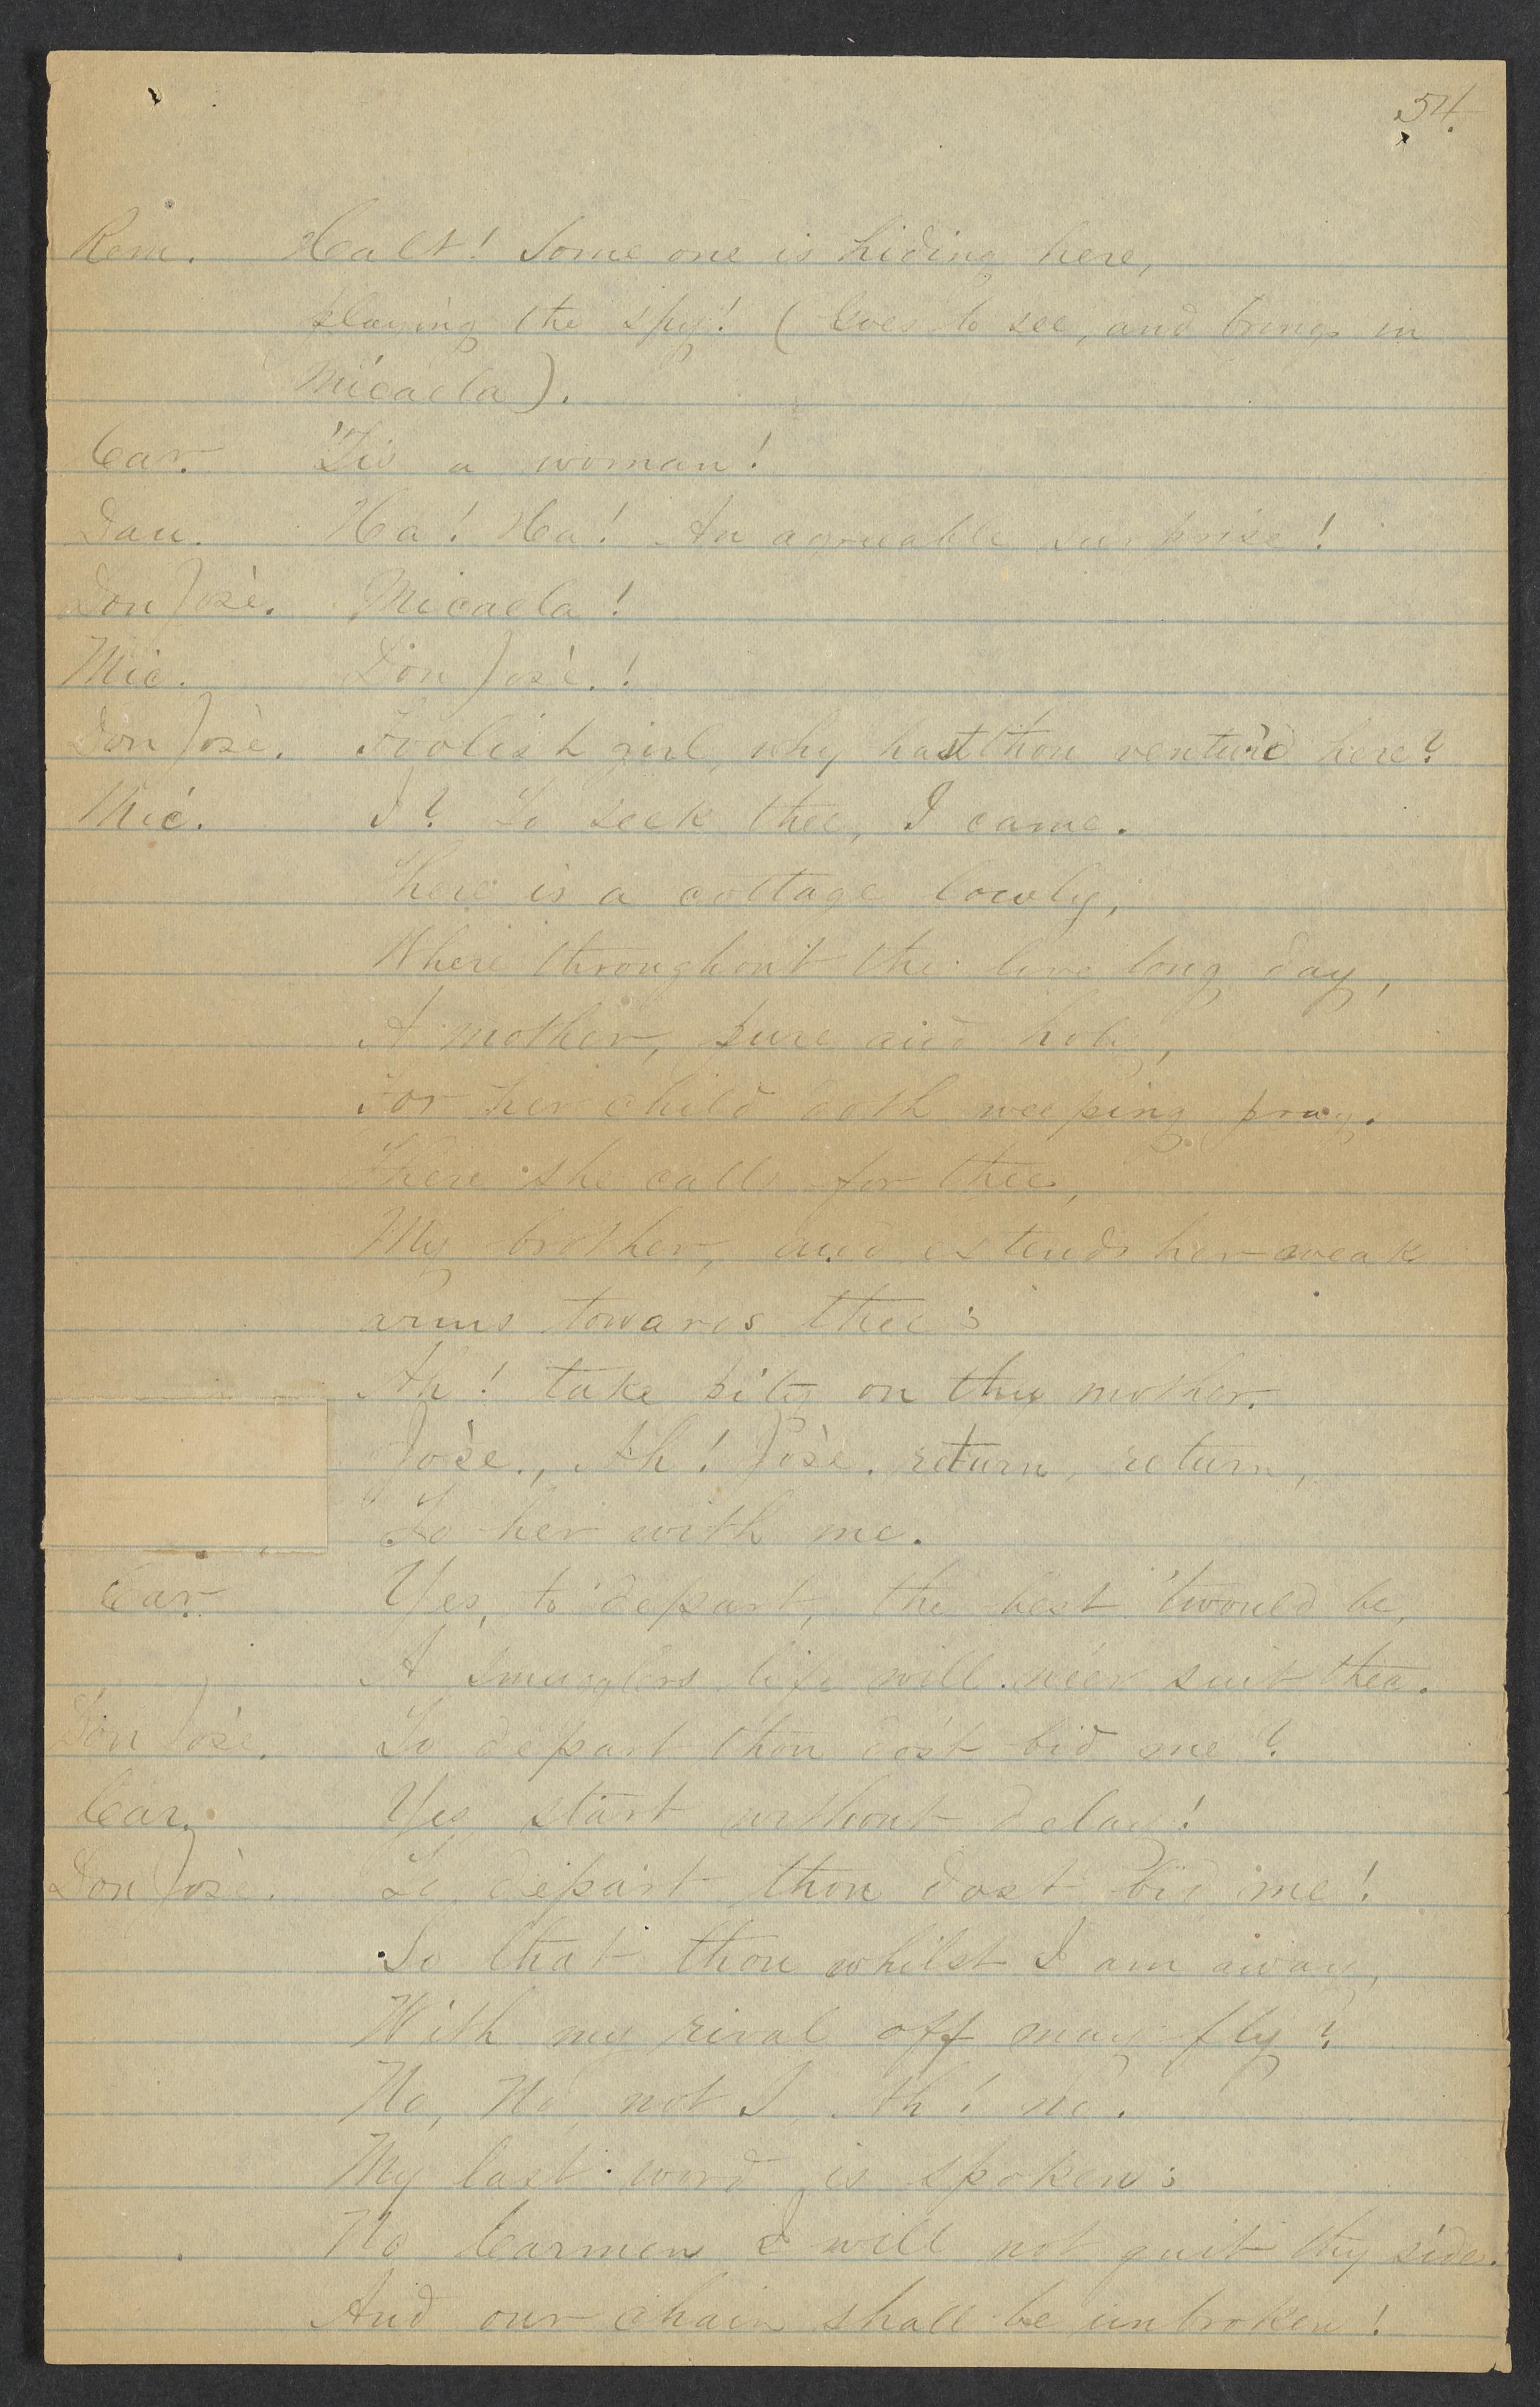 54.
Rem. Halt! Some one is hiding here,
playing the spy! (Goes to see, and brings in
Micaela).
Car. 'Tis a woman!
Dan. Ha! Ha! An agreeable surprise!
Don José. Micaela!
Mic. Don José.!
Don José. Foolish girl, why hast thou ventur'd here?
Mic. I? To seek thee, I came.
There is a cottage lowly,
Where throughout the live long day,
A mother, pure and holy,
For her child doth weeping pray.
There she calls for thee,
My brother, and extends her weak
arms towards thee;
Ah! take pity on thy mother.
Jose., Ah! José. return, return,
To her with me.
Car. Yes, to depart, the best 'twould be,
A smugglers life will ne'er suit thee.
Don José. To depart thou dost bid me?
Car. Yes start without delay!
Don José. To depart thou dost bid me!
So that thou whilst I am away,
With my rival off may fly?
No, No, not I, Ah! no.
My last word is spoken;
No Carmen I will not quit thy side.
And our chain shall be unbroken!